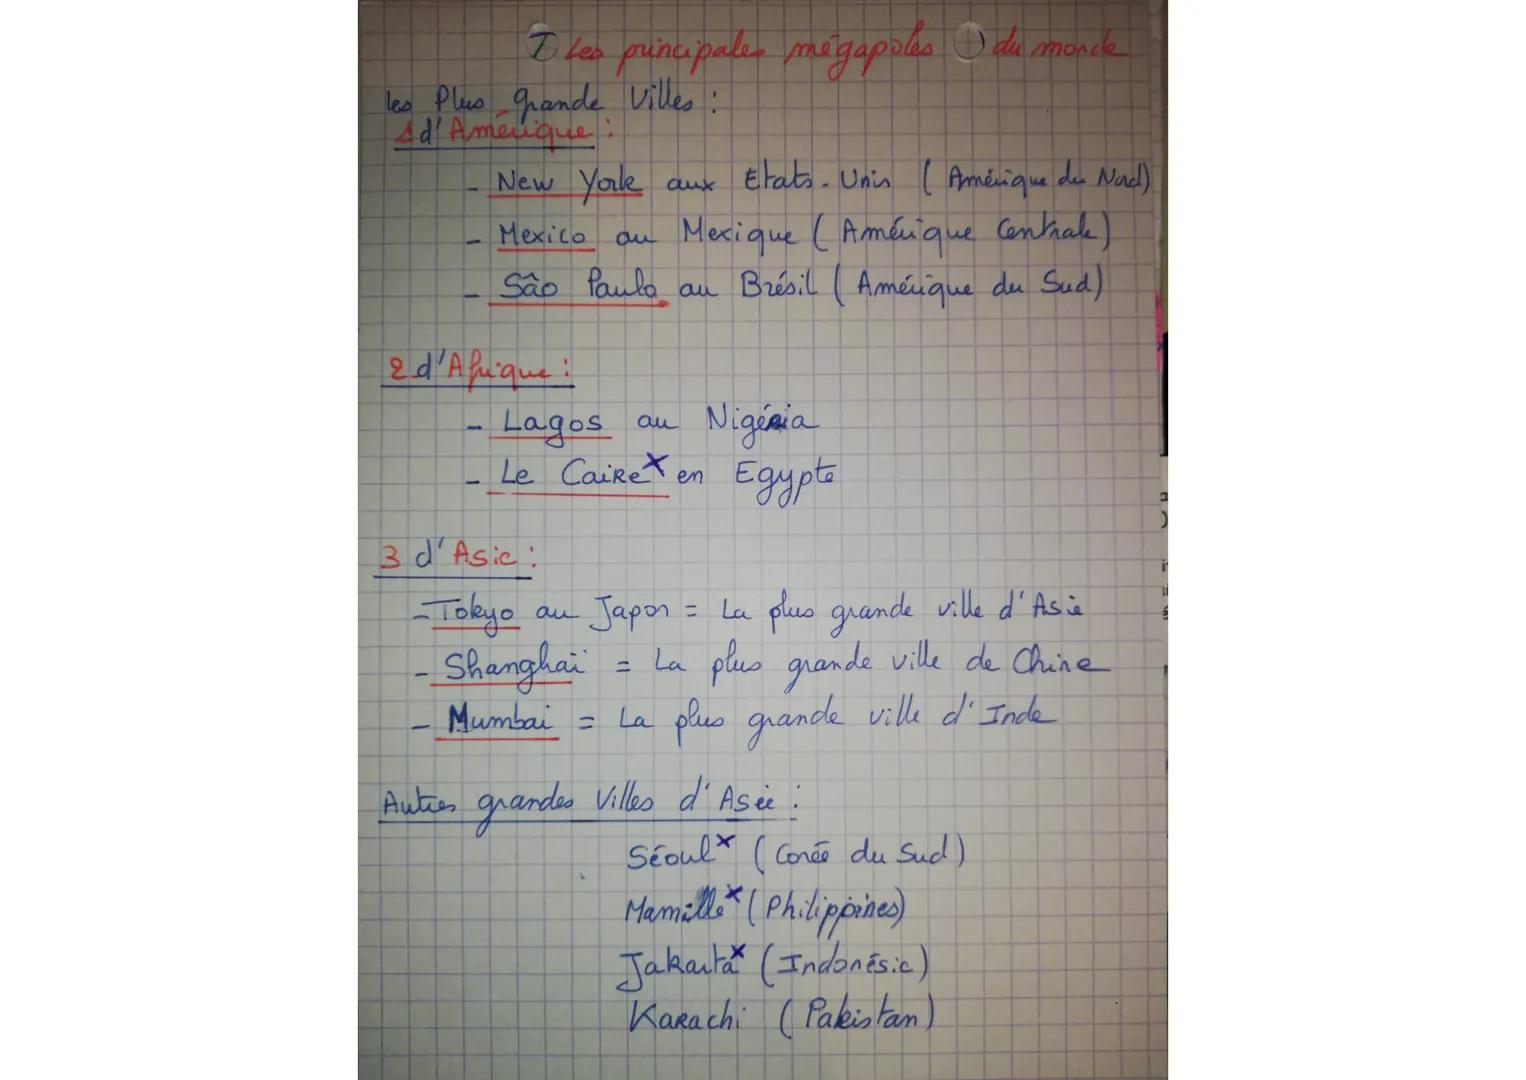 I Les principales mégapoles du monde
les Plus grande Villes :
1 d'Amérique :
- New York aux Etats-Unis (Amérique du Nord)
- Mexico au Mexique (Amérique Centrale)
- Sâo Paulo au Brésil (Amérique du Sud)
2 d'Afrique :
- Lagos au Nigéria
- Le Caire x en Egypte
3 d'Asie :
- Tokyo au Japon = La plus grande ville d'Asie
- Shanghaï = La plus grande ville de Chine
- Mumbai = La plus grande ville d'Inde
Autres grandes Villes d'Asie :
Séoul x (Corée du Sud)
Manille x (Philippines)
Jakarta x (Indonésie)
Karachi (Pakistan)